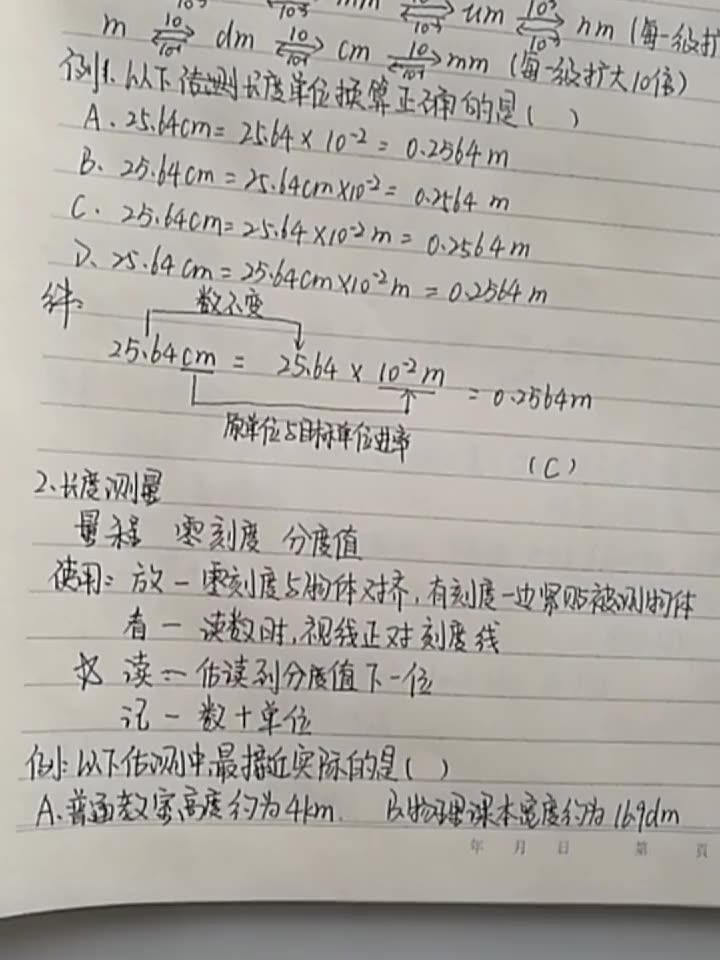 10³ 10⁻³ mm 10³ 10⁻³ um 10³ 10⁻³ nm (每一级扩
m 10 10⁻¹ dm 10 10⁻¹ cm 10 10⁻¹ mm (每一级扩大10倍)
例1. 以下估测长度单位换算正确的是( )
A. 25.64cm = 25.64 × 10⁻² = 0.2564 m
B. 25.64cm = 25.64cm×10⁻² = 0.2564 m
C. 25.64cm = 25.64×10⁻² m = 0.2564m
D. 25.64cm = 25.64cm×10⁻² m = 0.2564 m
数不变
25.64cm = 25.64 × 10⁻² m = 0.2564m
原单位与目标单位进率
(C)
2.长度测量
量程 零刻度 分度值
使用: 放 — 零刻度与物体对齐,有刻度一边紧贴被测物体
看 — 读数时,视线正对刻度线
读 — 估读到分度值下一位
记 — 数+单位
例: 以下估测中,最接近实际的是( )
A.普通教室高度约为4km. B.物理课本宽度约为16.9dm
年 月 日 第 頁